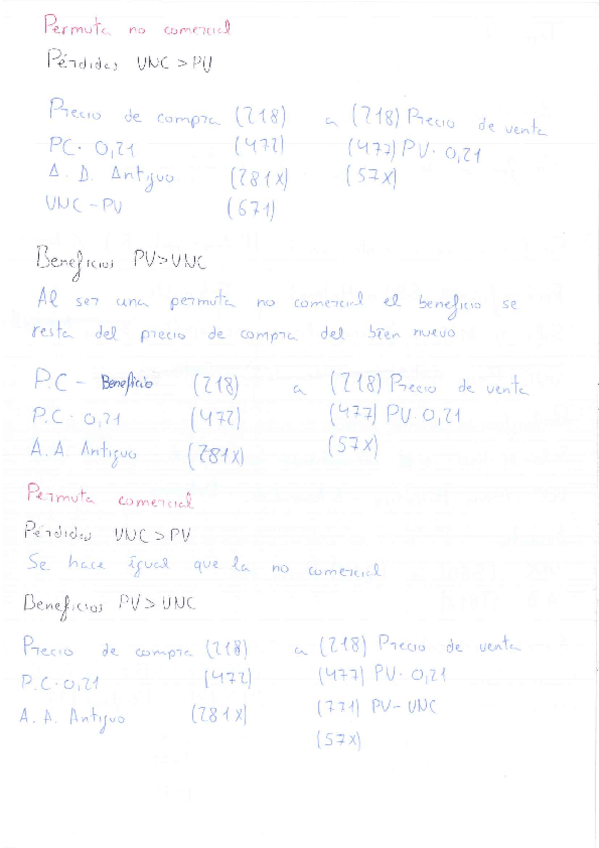 Permuta no comercial
Pérdidas VNC > PV
Precio de compra (218) a (218) Precio de venta
PC · 0,21 (472) (477) PV · 0,21
A. A. Antiguo (281x) (57x)
VNC - PV (671)
Beneficios PV > VNC
Al ser una permuta no comercial el beneficio se
resta del precio de compra del bien nuevo
P.C - Beneficio (218) a (218) Precio de venta
P.C · 0,21 (472) (477) PV · 0,21
A. A. Antiguo (281x) (57x)
Permuta comercial
Pérdidas VNC > PV
Se hace igual que la no comercial
Beneficios PV > VNC
Precio de compra (218) a (218) Precio de venta
P.C · 0,21 (472) (477) PV · 0,21
A. A. Antiguo (281x) (771) PV - VNC
(57x)